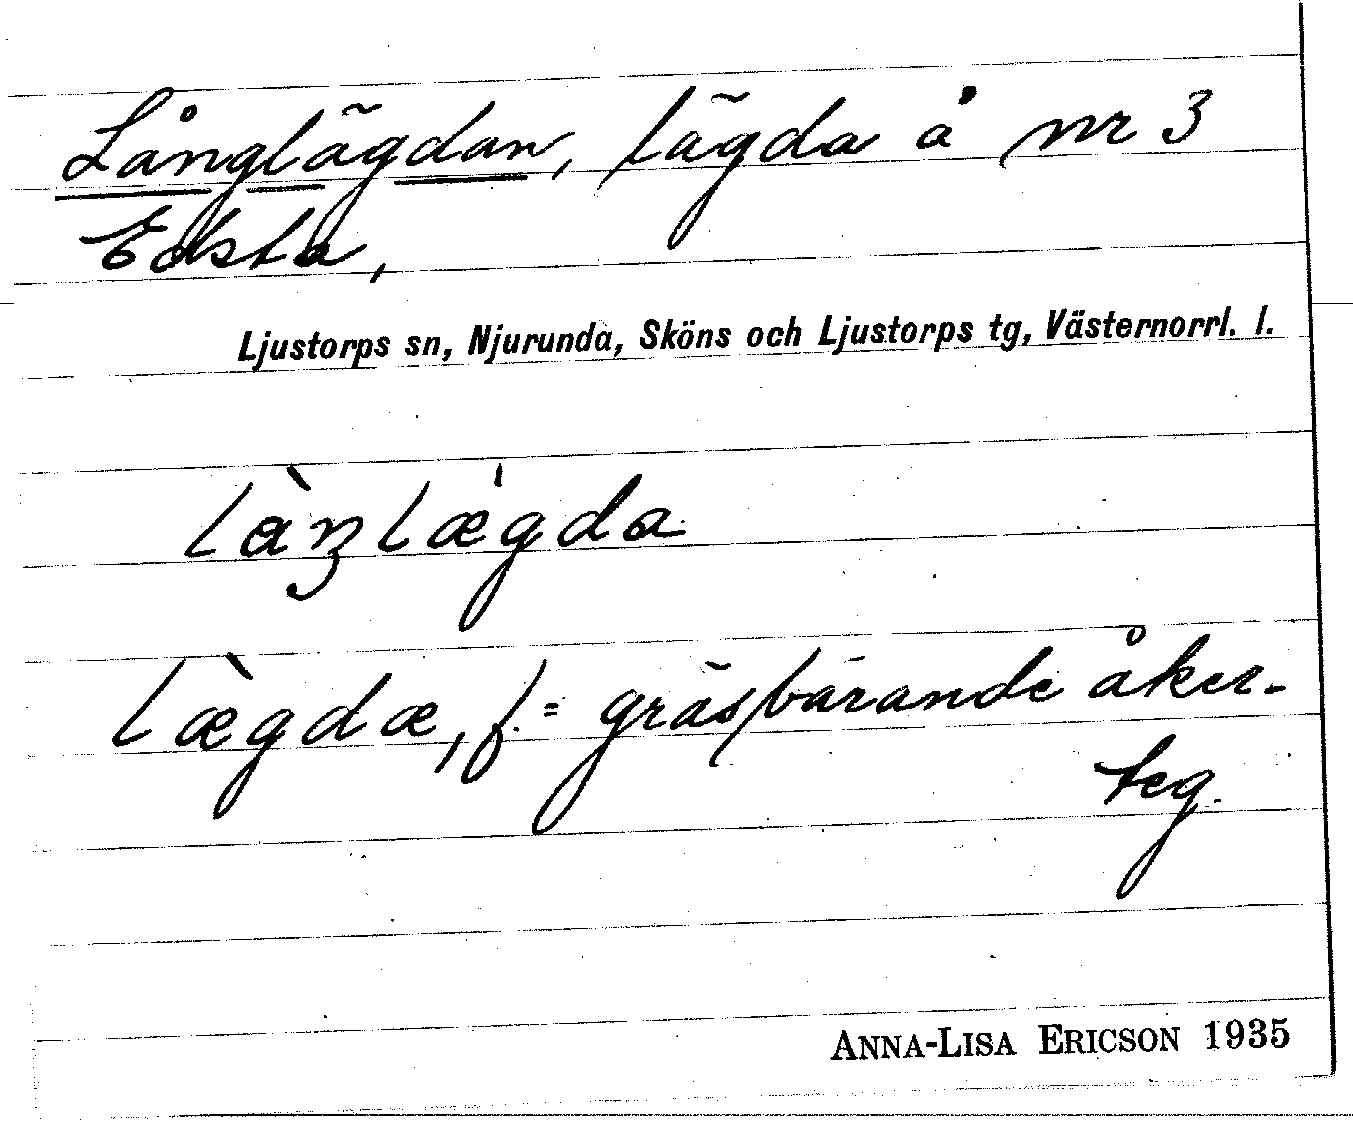 Långlägdan, lägda å nr 3
Edsta,
Ljustorps sn, Njurunda, Sköns och Ljustorps tg, Västernorrl. l.
làŋlǽgda
lægdæ̀, f. = gräsbärande åker-
teg.
ANNA-LISA ERICSON 1935